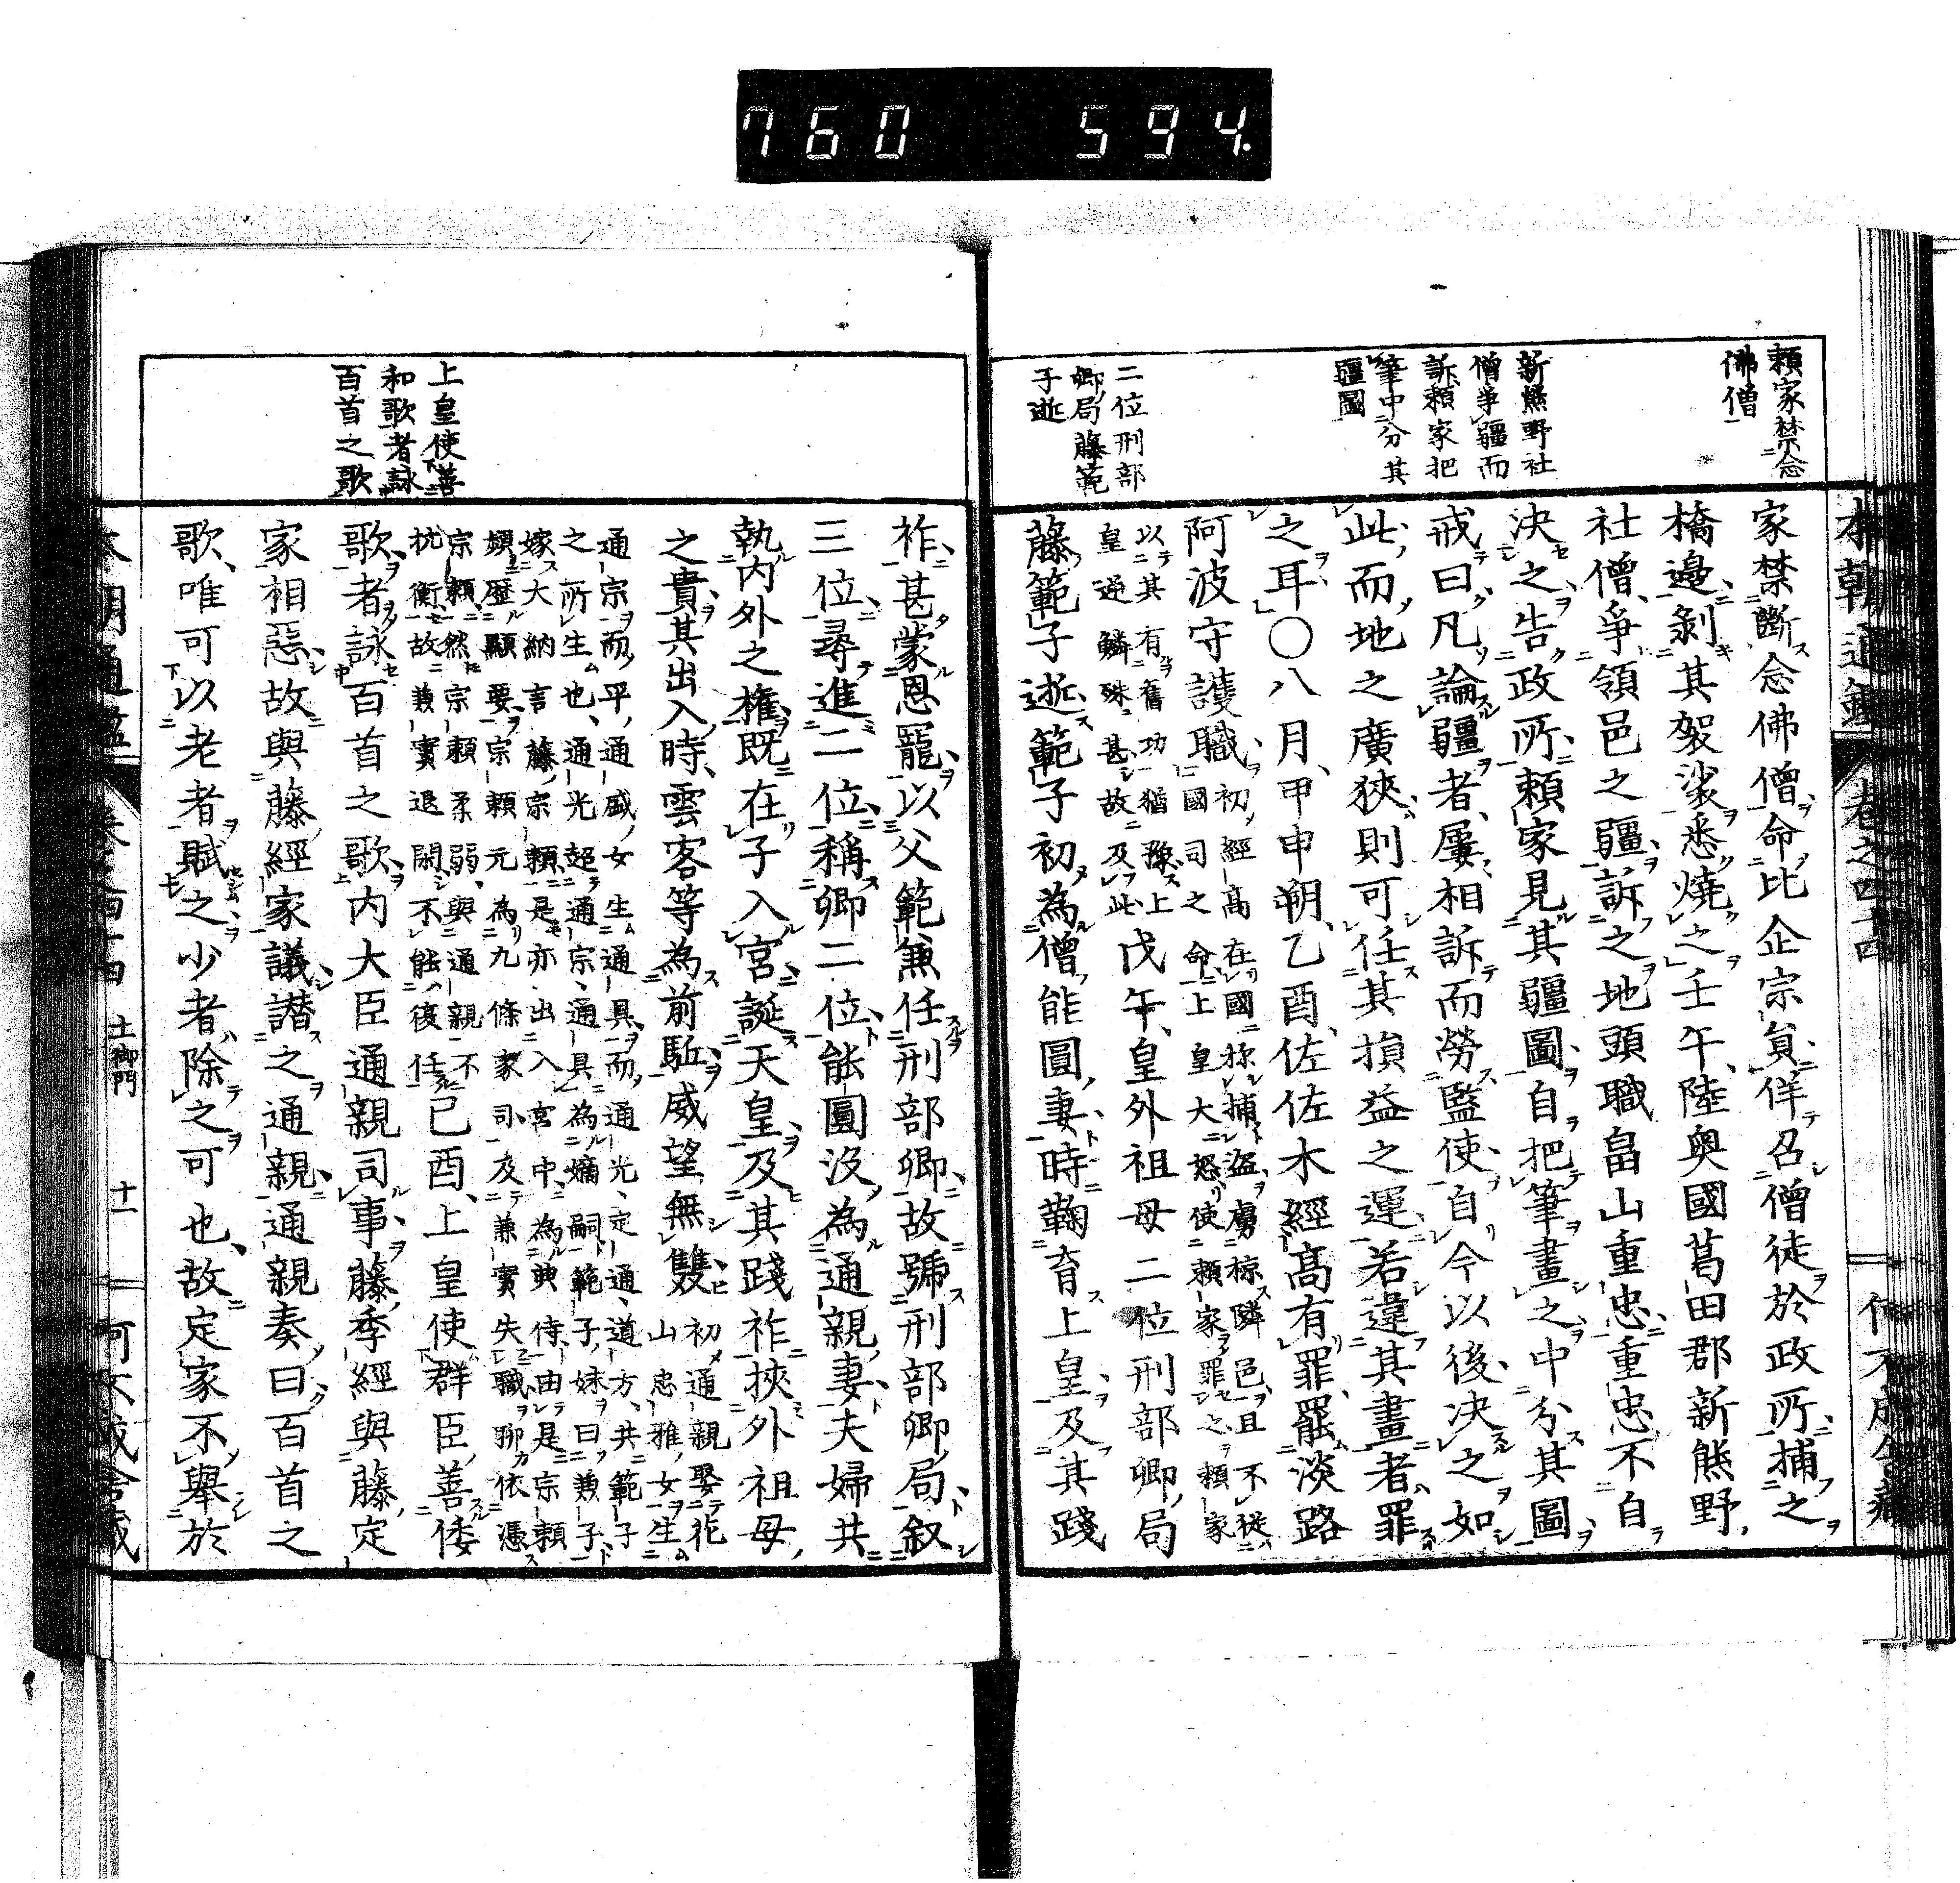 760 594.
頼家禁念
佛僧
新熊野社
僧爭疆而
訴頼家把
筆中分其
疆圖
二位刑部
卿局藤範
子逝
本朝通鑑 卷之四十四
家禁斷念佛僧命比企宗員佯召僧徒於政所捕之
橋邊剝其袈裟悉燒之壬午陸奥國葛田郡新熊野
社僧爭領邑之疆訴之地頭職畠山重忠重忠不自
決之告政所頼家見其疆圖自把筆畫之中分其圖
戒曰凡論疆者屢相訴而勞監使自今以後決之如
此而地之廣狹則可任其損益之運若違其畫者罪
之耳○八月甲申朔乙酉佐佐木經高有罪罷淡路
阿波守護職初經高在國稱捕盜虜掠隣邑且不從
國司之命上皇大怒使頼家罪之頼家
以其有舊功猶豫上
皇逆鱗殊甚故及此戊午皇外祖母二位刑部卿局
藤範子逝範子初為僧能圓妻時鞠育上皇及其踐
上皇使善
和歌者詠
百首之歌
祚甚蒙恩寵以父範兼任刑部卿故號刑部卿局叙
三位尋進二位稱卿二位能圓沒為通親妻夫婦共
執内外之權既在子入宮誕天皇及其踐祚挾外祖母
之貴其出入時雲客等為前駈威望無雙初通親娶花
山忠雅女生
通宗而平通盛女生通具而通光定通道方共範子
之所生也通光超通宗通具為嫡嗣範子妹曰兼子
嫁大納言藤宗頼是亦出入宮中為典侍由是宗頼
頻歴顯要宗頼元為九條家司及兼實失職聊依憑
宗頼然宗頼柔弱與通親不
抗衡故兼實退閑不能復任己酉上皇使群臣善倭
歌者詠百首之歌内大臣通親司事藤季經與藤定
家相惡故與藤經家議譖之通親通親奏曰百首之
歌唯可以老者賦之少者除之可也故定家不舉於
土御門 十一